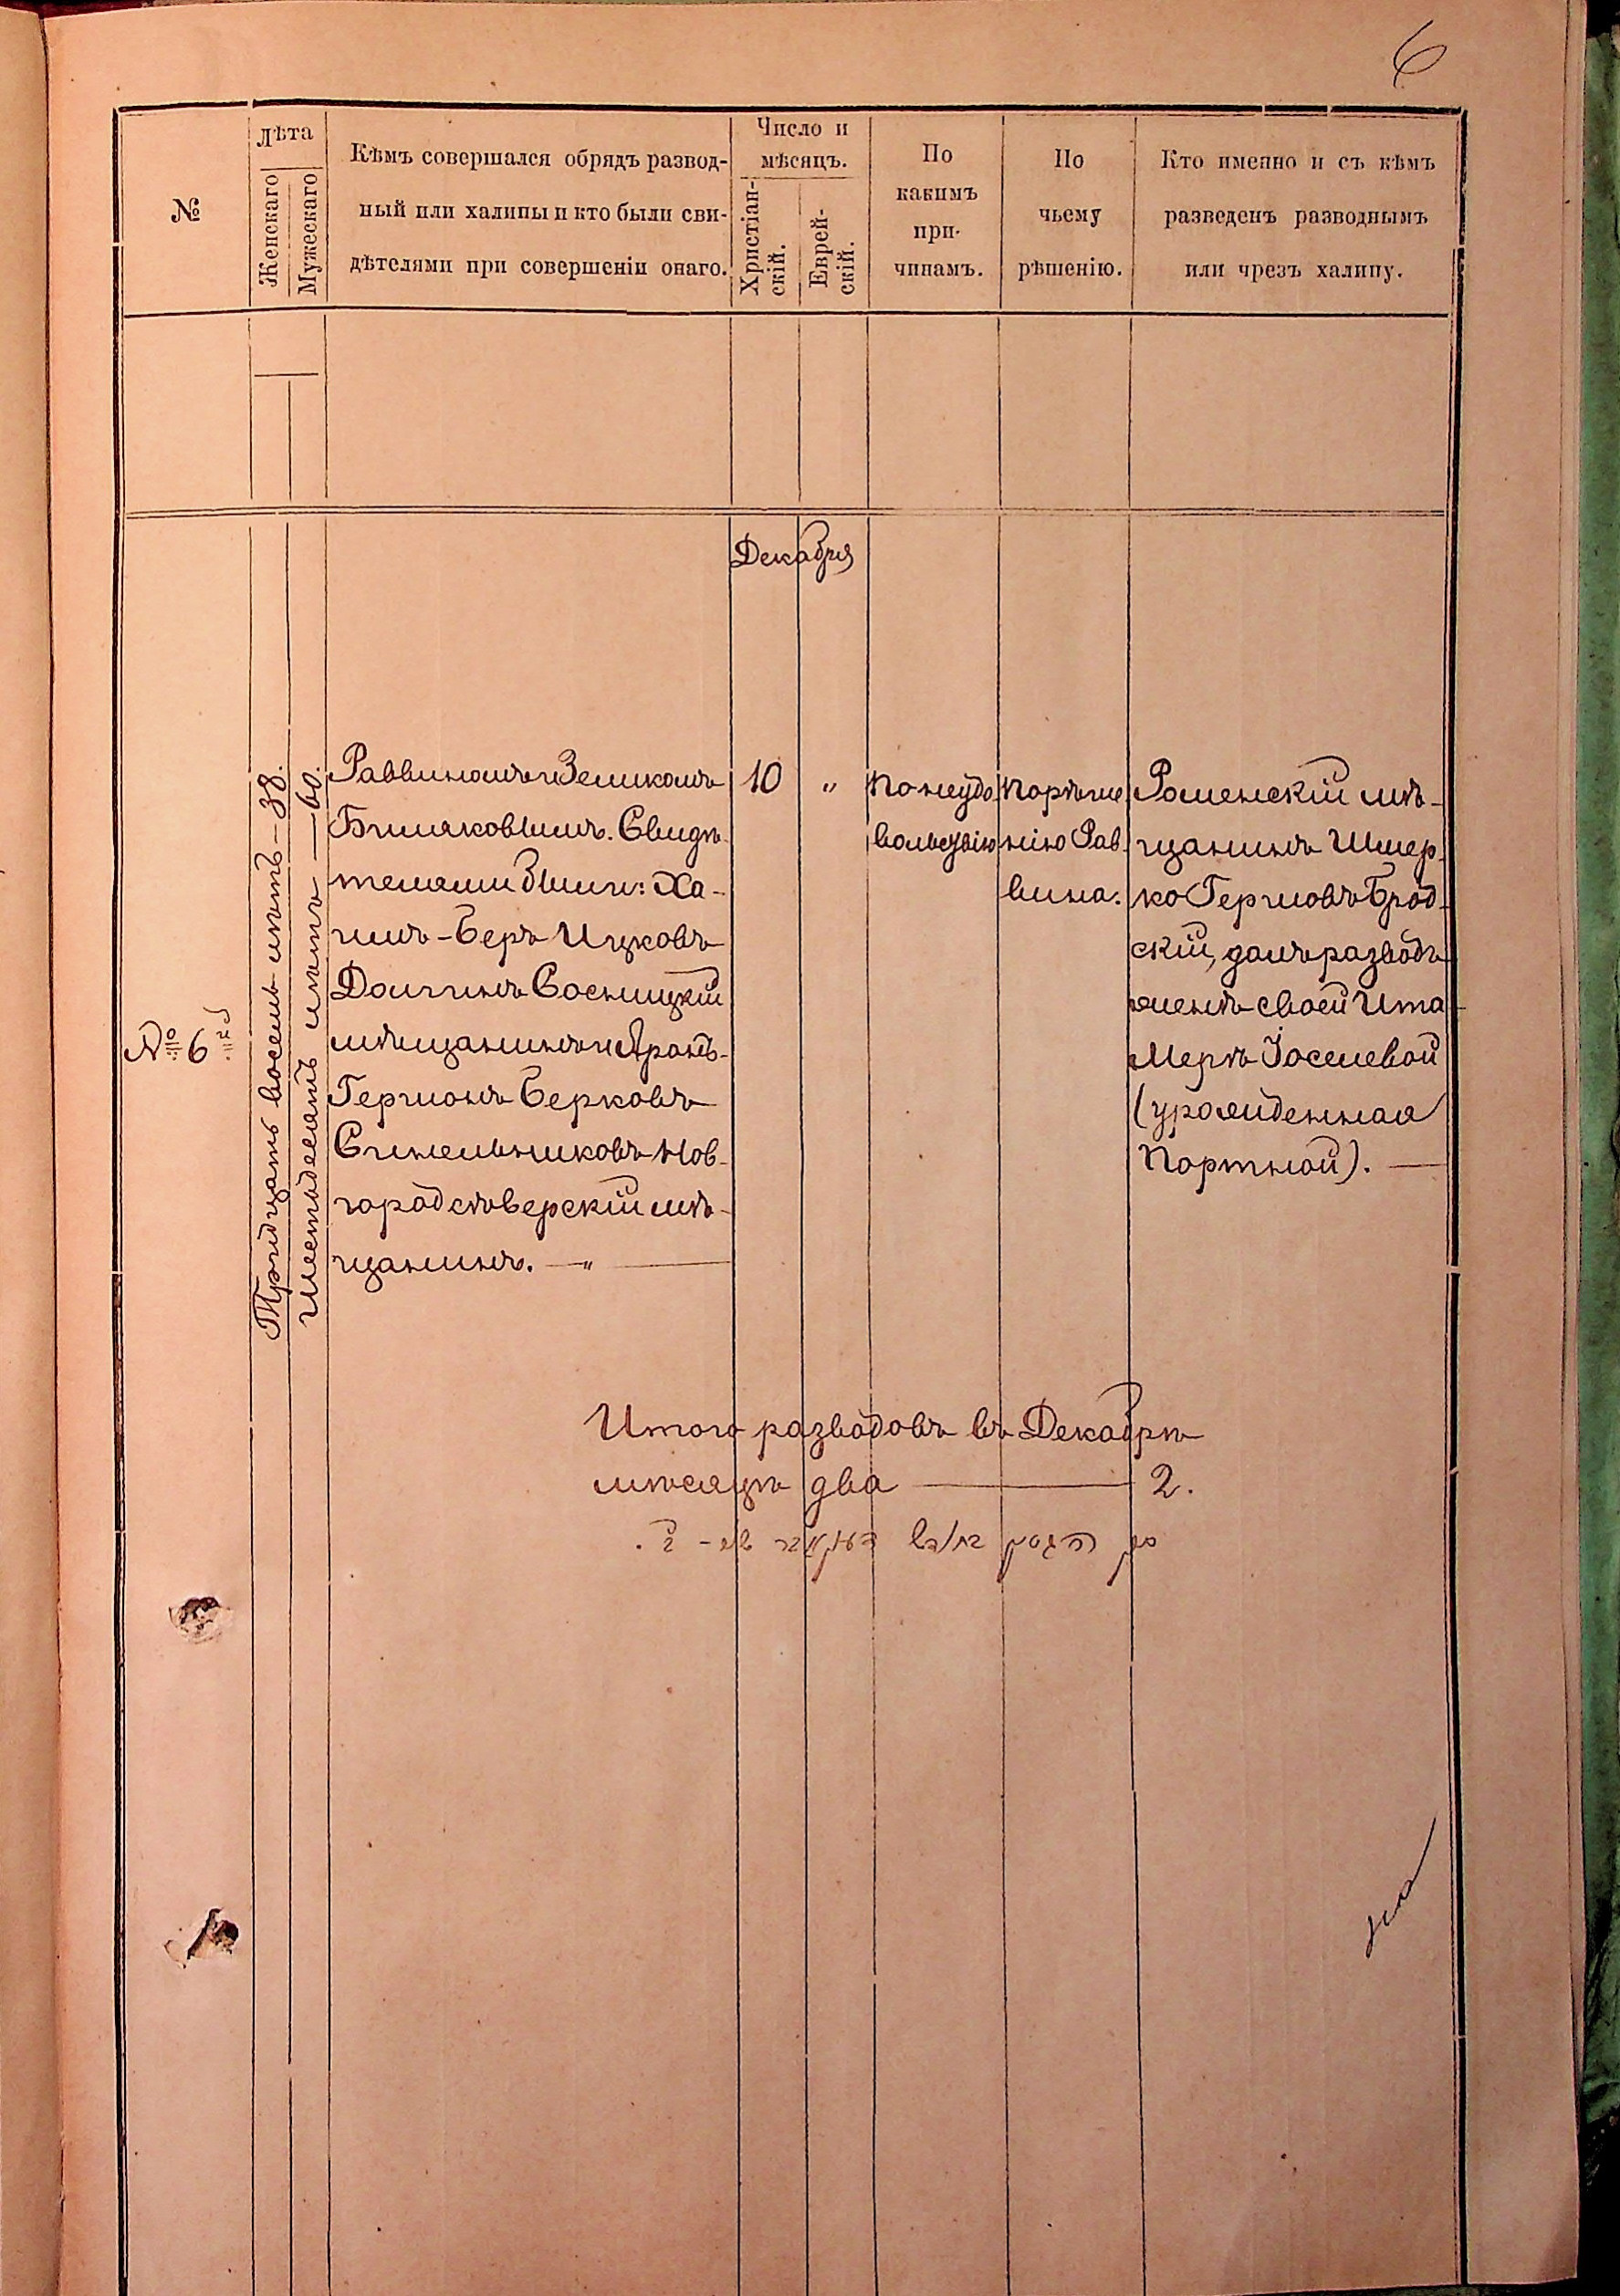 6
№
Лѣта
Женскаго
Мужескаго
Кѣмъ совершался обрядъ развод-
ный или халицы и кто были сви-
дѣтелями при совершеніи онаго.
Число и
мѣсяцъ.
Христіан-
скій.
Еврей-
скій.
По
какимъ
при-
чинамъ.
По
чьему
рѣшенію.
Кто именно и съ кѣмъ
разведенъ разводнымъ
или чрезъ халицу.
Декабря
№ 6й
Тридцать восемь лѣтъ — 38.
Шестьдесятъ лѣтъ — 60.
Раввиномъ Зеликомъ
Свидѣ-
телями были: Ха-
имъ-Беръ Ицковъ
Долгинъ Сосницкій
мѣщанинъ и Аронъ-
Гершонъ Берковъ
Синельниковъ Нов-
городсѣверскій мѣ-
щанинъ. — " —
10
"
По неудо
вольствію
По рѣше
нію Рав-
вина.
Роменскій мѣ-
щанинъ Шмер-
ко Гершовъ Брод-
скій, далъ разводъ
женѣ своей Ита
Мерѣ Іоселевой
(урожденная
Портной). —
Итого разводовъ въ Декабрѣ
мѣсяцѣ два — 2.